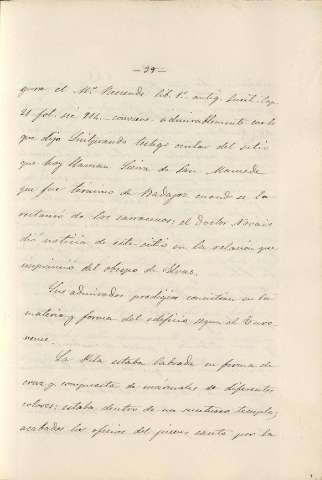 — 39 —
gura el M.º Resende lib. 1.º antig. Lusit. Cap.
21 fol. sie 214. conviene admirablemente con lo
que dijo Luitprando testigo ocular del sitio
que hoy llaman Sierra de San Mamede
que fue termino de Badajoz cuando se la
restauró de los sarracenos; el Doctor Novais
dió noticia de este sitio en la relacion que
imprimió del obispo de Elvas.
Sus admirados prodigios consistian en la
materia y forma del edificio segun el Turo-
nense.
La Pila estaba labrada en forma de
cruz y compuesta de marmoles de diferentes
colores; estaba dentro de un suntuoso templo;
acabados los oficios del jueves santo por la